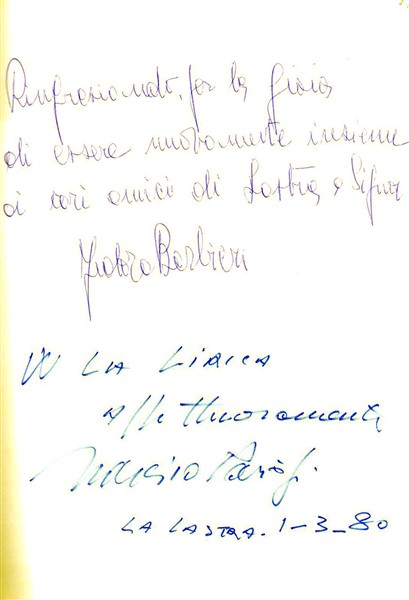 Ringraziando, per la gioia
di essere nuovamente insieme
ai cari amici di Lastra a Signa
Fedora Barbieri
W LA LIRICA
affettuosamente
LA LASTRA. 1-3-80